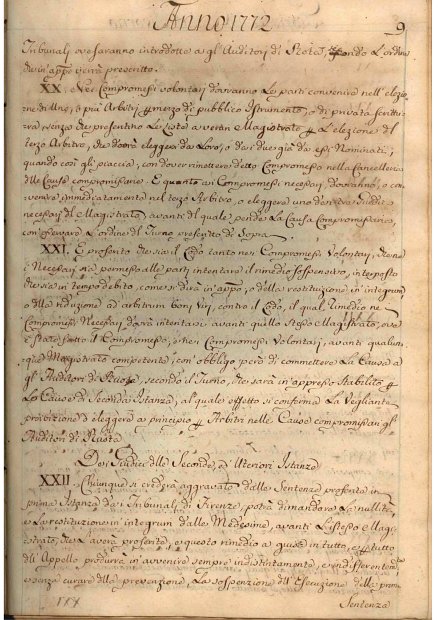 Anno 1772
9
Tribunali, o saranno introdotte a gl'Auditori di Ruota, secondo l'ordine
che in app.o verrà prescritto.
XX. Nei Compromessi volontari dovranno le parti convenire nell'elezio
ne di uno, o più Arbitri p mezzo di pubblico Istrumento, o di privata scrittu
ra senza che presentino la lista a verun Magistrato p l'elezione del
terzo Arbitro, che dovrà eleggersi da loro, o dai due già da essi Nominati,
quando così gli piaccia, con dover rimettere detto Compromesso nella Cancelleria
delle Cause compromissarie. E quanto ai Compromessi necessari, dovranno, o con
venire immediatamente nel terzo Arbitro, o eleggere uno dentro i Giudici
necessari del Magistrato, avanti al quale pende la Causa Compromissaria,
con osservare l'ordine di Turno prescritto di sopra.
XXI. E proferito che sia il Lodo tanto nei Compromessi Volontari, che ne
i Necessari sia permesso alle parti intentare il rimedio sospensivo, interposto
che sia in tempo debito, come si dirà in app.o, o della restituzione in integrum
o della riduzione ad arbitrium boni Viri, contro il Lodo, il qual rimedio ne
Compromessi Necessari dovrà intentarsi avanti quello stesso Magistrato, ove
è stato fatto il Compromesso, e nei Compromessi Volontari, avanti qualun
que Magistrato competente, con obbligo però di commettere la Causa a
gl'Auditori di Ruota, secondo il Turno, che sarà in appresso stabilito p
le Cause di Seconda Istanza, al quale effetto si conferma la Vegliante
proibizione d'eleggere a principio p Arbitri nelle Cause compromissarie gl'
Auditori di Ruota
Dei Giudici delle Seconde, e Ulteriori Istanze
XXII. Chiunque si crederà aggravato dalle Sentenze proferite in
prima Istanza da i Tribunali di Firenze, potrà dimandare la nullità,
e la restituzione in integrum dalle Medesime, avanti l'istesso Magi
strato, che l'averà proferite, e questo rimedio a guisa in tutto, e p tutto
dell'Appello produrrà in avvenire sempre indistintamente, e indifferentem.te
e senza curare della prevenzione, la sospenzione dell'Esecuzione della prima
Sentenza